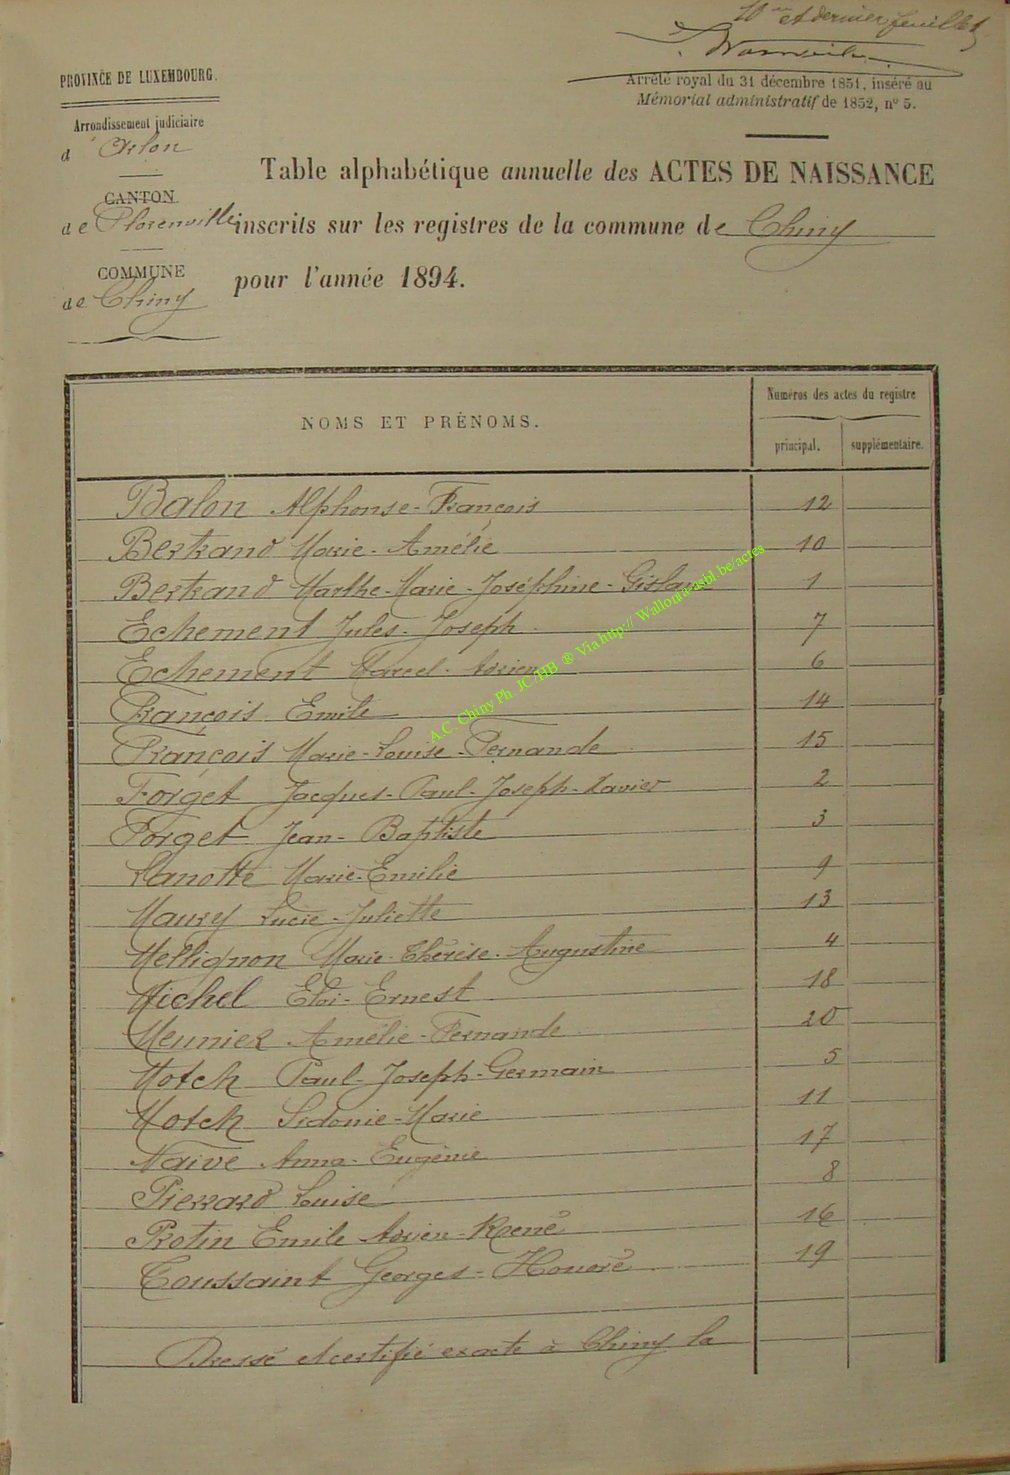 et dernier feuillet
PROVINCE DE LUXEMBOURG.
Arrêté royal du 31 décembre 1851, inséré au
Mémorial administratif de 1852, n° 5.
Arrondissement judiciaire
d'Arlon
Table alphabétique annuelle des ACTES DE NAISSANCE
CANTON
de Florenville
inscrits sur les registres de la commune de Chiny
COMMUNE
de Chiny
pour l'année 1894.
NOMS ET PRÉNOMS.
Numéros des actes du registre
principal. supplémentaire.
Balon Alphonse-François 12
Bertrand Marie-Amélie 10
Bertrand Marthe-Marie-Joséphine-Gislaine 1
Echement Jules-Joseph 7
Echement Marcel-Adrien 6
François Emile 14
François Marie-Louise-Fernande 15
Forget Jacques-Paul-Joseph-Xavier 2
Forget Jean-Baptiste 3
Lanotte Marie-Emilie 9
Maury Lucie-Juliette 13
Mellignon Marie-Thérèse-Augustine 4
Michel Eloi-Ernest 18
Meunier Amélie-Fernande 20
Motch Paul-Joseph-Germain 5
Motch Sidonie-Marie 11
Naive Anna-Eugénie 17
Pierrard Louise 8
Protin Emile-Adrien-René 16
Toussaint Georges-Honoré 19
Dressé et certifié exacte à Chiny le
A.C. Chiny Ph JC/HB ® Via http:// Wallonia-asbl.be/actes